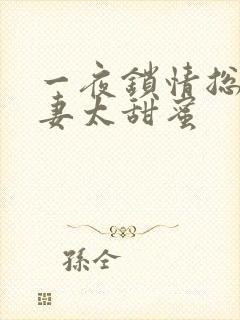 一夜鎖情總
妻太甜蜜
孫全